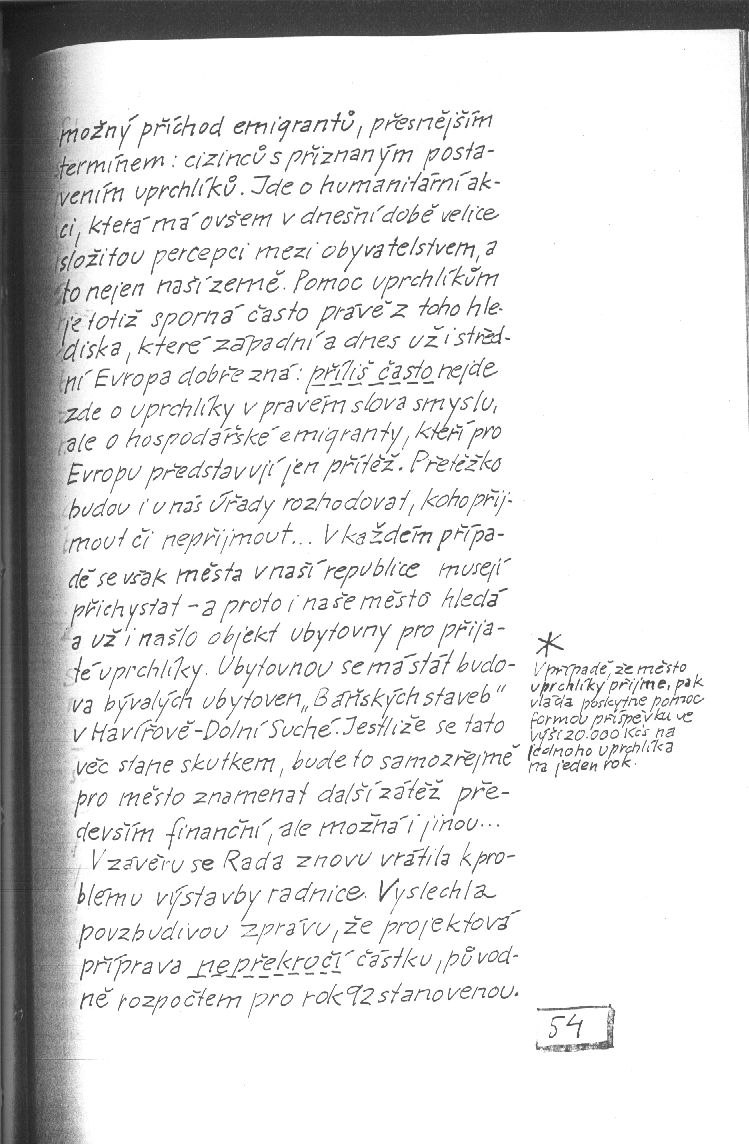 možný příchod emigrantů, přesnějším
termínem: cizinců s přiznaným posta-
vením uprchlíků. Jde o humanitární ak-
ci, která má ovšem v dnešní době velice
složitou percepci mezi obyvatelstvem, a
to nejen naší země. Pomoc uprchlíkům
je totiž sporná často právě z toho hle-
diska, které západní a dnes už i střed-
ní Evropa dobře zná: příliš často nejde
zde o uprchlíky v pravém slova smyslu,
ale o hospodářské emigranty, kteří pro
Evropu představují jen přítěž. Přetěžko
budou i u nás úřady rozhodovat, koho přij-
mout či nepřijmout... V každém přípa-
dě se však města v naší republice musejí
přichystat - a proto i naše město hledá
a už i našlo objekt ubytovny pro přija-
té uprchlíky. Ubytovnou se má stát budo-
va bývalých ubytoven „Báňských staveb"
v Havířově-Dolní Suché. Jestliže se tato
věc stane skutkem, bude to samozřejmě
pro město znamenat další zátěž pře-
devším finanční, ale možná i jinou...
V závěru se Rada znovu vrátila k pro-
blému výstavby radnice. Vyslechla
povzbudivou zprávu, že projektová
příprava nepřekročí částku, původ-
ně rozpočtem pro rok 92 stanovenou.
*
V případě, že město
uprchlíky přijme, pak
vláda poskytne pomoc
formou příspěvku ve
výši 20.000 Kčs na
jednoho uprchlíka
na jeden rok.
54